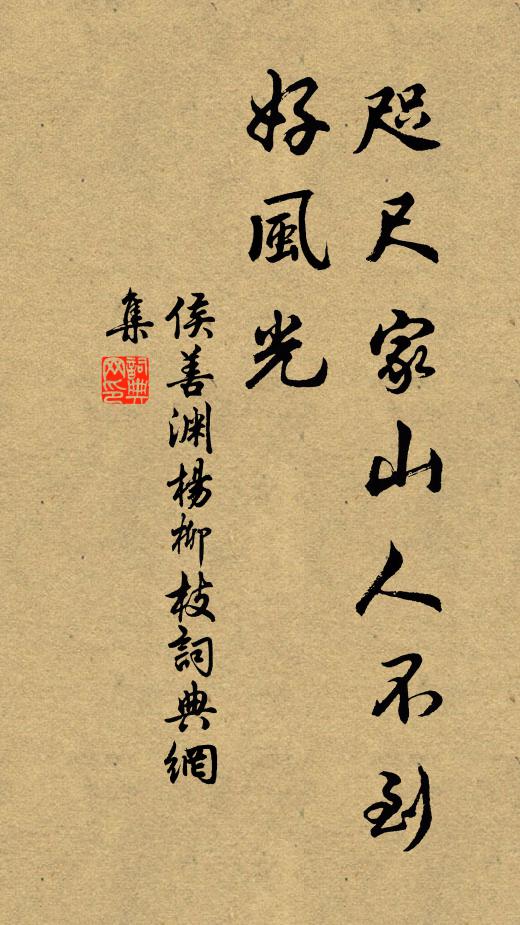 咫尺家山人不到
好風光
侯善渊楊柳枝詞典網
集
詞典
网印